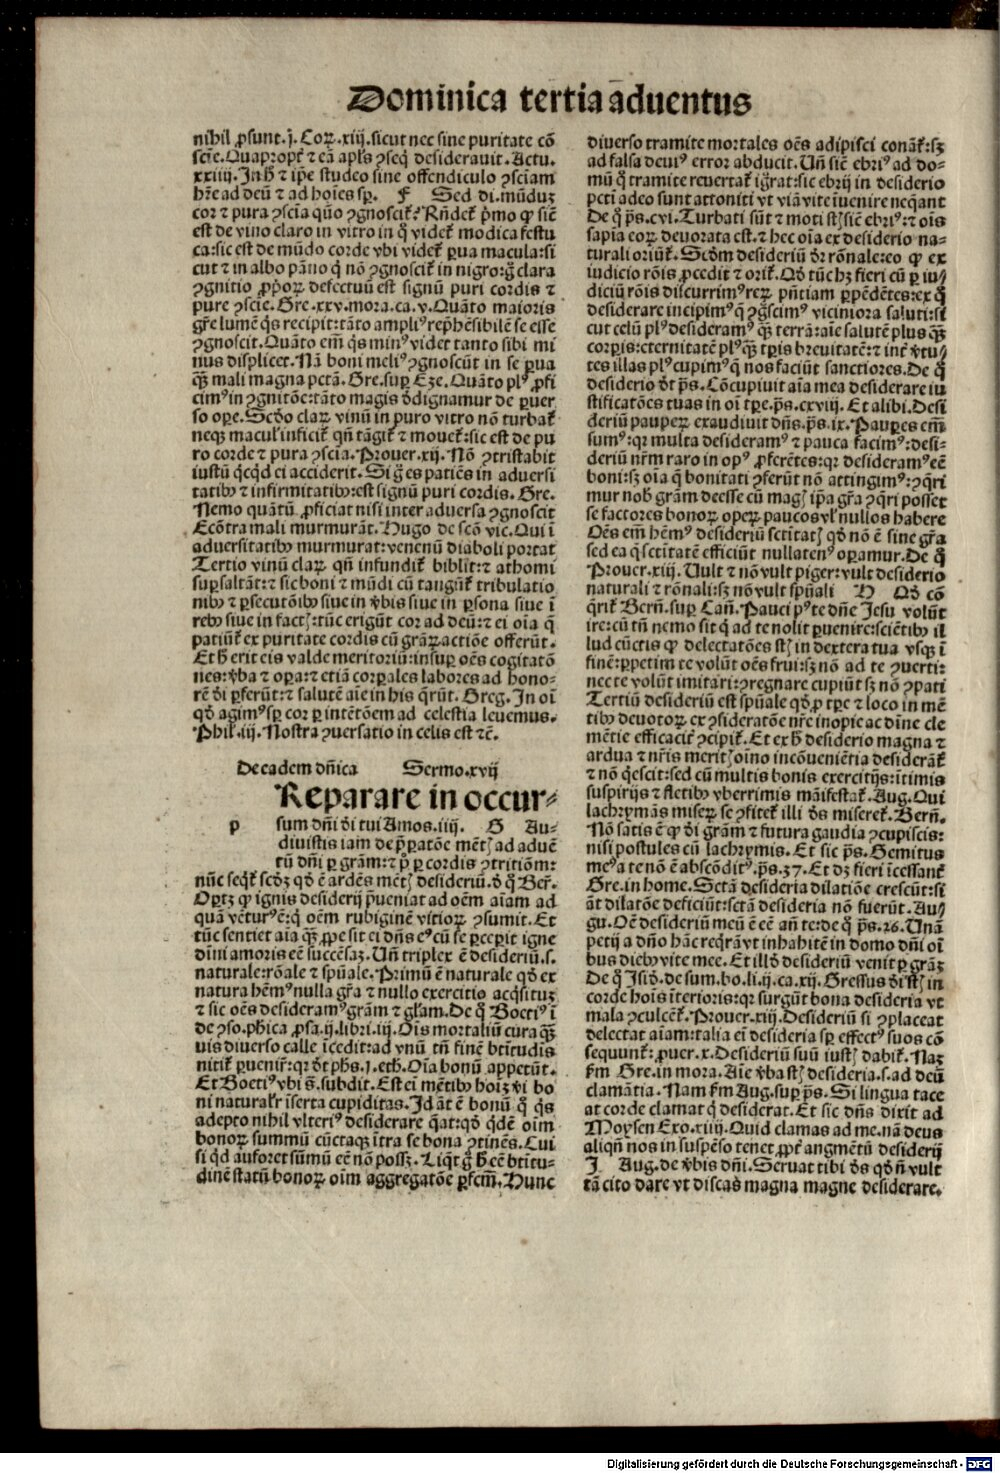 Dominica tertia aduentus
nihil ꝓsunt.j. Coꝝ.xiij.sicut nec sine puritate cō
sciē. Quapropt̄ ⁊ eā apl's ꝯseq̄ desiderauit. Actu.
xxiiij. In ħ ⁊ ip̄e studeo sine offendiculo ꝯsciam
hr̄e ad deū ⁊ ad hoīes sꝑ. F Sed di.mūduꝫ
cor ⁊ pura ꝯscia quō ꝯgnoscit̄? Rn̄det̄ p̄mo ꝙ siē
est de vino claro in vitro in q̄ videt̄ modica festu
ca:sic est de mūdo corde vbi videt̄ ꝑua macula:si
cut ⁊ in albo pāno q̄ nō ꝯgnoscit̄ in nigro:g̊ clara
ꝯgnitio ꝓp̄oꝝ defectuū est signū puri cordis ⁊
pure ꝯsciē. Gre.xxv.mora.ca.v. Quāto maioris
gr̄e lumē q̄s recipit:tāto ampliꝰ rep̄hēsibilē se esse
ꝯgnoscit. Quāto em̄ q̄s minꝰ videt tanto sibi mi
nus displicet. Nā boni meliꝰ ꝯgnoscūt in se ꝑua
q̄ꝫ mali magna pctā. Gre.suꝑ Eze. Quāto plꝰ ꝓfi
cimꝰ in ꝯgnitōe:tāto magis d̄dignamur de ꝑuer
so oꝑe. Scd̄o claꝝ vinū in puro vitro nō turbat̄
neqꝫ macul'inficit̄ qn̄ tāgit̄ ⁊ mouet̄:sic est de pu
ro corde ⁊ pura ꝯscia. Prouer.xij. Nō ꝯtristabit
iustū q̄cq̄d ei acciderit. Si g̊ es patiēs in aduersi
tatibꝰ ⁊ infirmitatibꝰ:est signū puri cordis. Gre.
Nemo quātū ꝓficiat nisi inter aduersa ꝯgnoscit
Ecōtra mali murmurāt. Hugo de scō vic. Qui ī
aduersitatibꝰ murmurat:venenū diaboli portat
Tertio vinū claꝝ qn̄ infundit̄ biblit:⁊ athomi
suꝑsaltāt:⁊ sic boni ⁊ mūdi cū tangūt̄ tribulatio
nibꝰ ⁊ ꝑsecutōibꝰ siue in v̄bis siue in ꝑsona siue ī
rebꝰ siue in factꝭ:tūc erigūt cor ad deū:⁊ ei oīa q̄
patiūt̄ ex puritate cordis cū grāꝝ actiōe offerūt.
Et ħ erit eis valde meritoriū:insuꝑ oēs cogitatō
nes:v̄ba ⁊ oꝑa:⁊ etiā corꝑales labores ad hono-
rē di ꝑferūt:⁊ salutē aīe in his q̄rūt. Greg. In oī
qd̄ agimꝰ sꝑ cor ꝑ intētōem ad celestia leuemus.
Phil'.iij. Nostra ꝯuersatio in celis est ⁊č.
De eadem dn̄ica Sermo.xvij
Reparare in occur-
p sum dn̄i di tui Amos.iiij. G Au-
diuistis iam de p̄ꝑatōe mētꝭ ad aduē
tū dn̄i ꝑ grām:⁊ p̄ ꝑ cordis ꝯtritiōm:
nūc seqt̄ scd̄ꝫ qd̄ ē ardēs mētꝭ desideriū.d̄ q̄ Ber̄.
Oꝑtꝫ ꝙ ignis desiderij p̄ueniat ad oēm aīam ad
quā vēturꝰ ē:q̄ oēm rubiginē vitioꝝ ꝯsumit. Et
tūc sentiet aīa q̄ꝫ ꝓpe sit ei dn̄s eꝰ cū se ꝑceꝑit igne
diuī amoris eē succēsaꝫ. Un̄ triplex ē desideriū.s.
naturale:rōale ⁊ spūale. Primū ē naturale qd̄ ex
natura hēmꝰ nulla gr̄a ⁊ nullo exercitio acq̄situꝫ
⁊ sic oēs desideramꝰ grām ⁊ glām. De q̄ Boetiꝰ ī
de ꝯso.ph̄ica ꝓsa.ij.libri.iij. Oīs mortaliū cura q̄ꝫ
uis diuerso calle īcedit:ad vnū tn̄ finē btītudīs
nitit̄ ꝑuenir̄:qr d̄t ph̄s.j.eth. Oīa bonū appetūt.
Et Boetiꝰ vbi s̄.subdit. Est ei mētibꝰ hoīꝫ vi bo
ni natural'r īserta cupiditas. Id āt ē bonū q̄ q̄s
adepto nihil vlteriꝰ desiderare q̄at:qd̄ q̄dē oīm
bonoꝝ summū cūctaqꝫ ītra se bona ꝯtinēs. Cui
si q̄d auforet sūmū eē nō possꝫ. Liq̄t g̊ ħ eē btītu-
dinē statū bonoꝝ oīm aggregatōe ꝑfcm̄. Hunc
diuerso tramite mortales oēs adipisci conāt̄:sꝫ
ad falsa deuiꝰ error abducit. Un̄ siē ebriꝰ ad do-
mū q̄ tramite reuertat̄ īgrat:sic ebrij in desiderio
pcti adeo sunt attoniti vt viā vite īuenire neq̄ant
De q̄ ps̄.cvi. Turbati sūt ⁊ moti st̄ siē ebriꝰ:⁊ oīs
sapīa eoꝝ deuorata est.⁊ hec oīa ex desiderio na-
turali oriūt̄. Scd̄m desideriū dr̄ rōnale:eo ꝙ ex
iudicio rōis ꝓcedit ⁊ orit̄. Qd̄ tūc hꝫ fieri cū ꝑ iu/
diciū rōis discurrimꝰ reꝝ pn̄tiam ꝑpēdētes:ex q̄
desiderare incipimꝰ q̄ ꝯg̊scimꝰ viciniora saluti:si
cut celū plꝰ desideramꝰ q̄ꝫ terrā:aīe salutē plus q̄ꝫ
corꝑis:eternitatē plꝰ q̄ꝫ tꝑis breuitatē:⁊ int̄ v̄tu/
tes illas plꝰ cupimꝰ q̄ nos faciūt sanctiores. De q̄
desiderio d̄t ps̄. Cōcupiuit aīa mea desiderare iu
stificatōes tuas in oī tꝑe.ps̄.cxviij. Et alibi. Desi
deriū pauꝑeꝝ exaudiuit dn̄s.ps̄.ix. Pauꝑes em̄
sumꝰ:qr multa desideramꝰ ⁊ pauca facimꝰ:desi-
deriū nr̄m raro in opꝰ ꝓferētes:qr desideramꝰ eē
boni:sꝫ oīa q̄ bonitati ꝯferūt nō attingimꝰ:ꝯq̄ri
mur nob̄ grām deesse cū magꝭ ip̄a gr̄a ꝯq̄ri posset
se factores honoꝝ oꝑeꝝ paucos vl'nullos habere
Oēs em̄ hēmꝰ desideriū sctitatꝭ qd̄ nō ē sine gr̄a
sed ea q̄ sctitatē efficiūt nullatenꝰ oꝑamur. De q̄
Prouer.xiij. Uult ⁊ nō vult piger:vult desiderio
naturali ⁊ rōnali:sꝫ nō vult spūali H Qd̄ cō
q̄rit̄ Bern̄.suꝑ Can̄. Pauci pꝰ te dn̄e Jesu volūt
ire:cū tn̄ nemo sit q̄ ad te nolit ꝑuenire:sciētibꝰ il
lud cūctis ꝙ delectatōes st̄ in dextera tua vsqꝫ ī
finē:ꝑpetim te volūt oēs frui:sꝫ nō ad te ꝯuerti:
nec te volūt imitari:ꝯregnare cupiūt sꝫ nō ꝯpati
Tertiū desideriū est spūale qd̄ ꝓ tꝑe ⁊ loco in mē
tibꝰ deuotoꝝ ex ꝯsideratōe nr̄e inopie ac diīne cle
mētie efficacit̄ ꝯcipit̄. Et ex ħ desiderio magna ⁊
ardua ⁊ nr̄is meritꝭ oīno incōuenietia desiderāt̄
⁊ nō q̄escit:sed cū multis bonis exercitijs:ītimis
suspirijs ⁊ fletibꝰ vberrimis māifestat̄. Aug. Qui
lachrymās miseꝝ se ꝯfitet̄ illi d̄s miseret̄. Bern̄.
Nō satis ē ꝙ di grām ⁊ futura gaudia ꝯcupiscis:
nisi postules cū lachrymis. Et sic ps̄. Gemitus
meꝰ a te nō ē abscōditꝰ.ps̄.37. Et dꝫ fieri īcessant̄
Gre.in home. Sctā desideria dilatiōe crescūt:si
āt dilatōe deficiūt:sctā desideria nō fuerūt. Au/
gu. Oē desideriū meū ē eē an̄ te:de q̄ ps̄.26. Unā
petij a dn̄o hāc reqrā:vt inhabitē in domo dn̄i oī
bus diebꝰ vite mee. Et illd̄ desideriū venit ꝑ grāꝫ
De q̄ Isid̄.de sum.bo.li.ij.ca.xij. Gressus di st̄ in
corde hoīs īterioris:qr surgūt bona desideria vt
mala ꝯculcēt̄. Prouer.xiij. Desideriū si ꝯplaceat
delectat aīam:talia ei desideria sꝑ effectꝰ suos cō
sequunt̄:ꝓuer.x. Desideriū suū iustꝭ dabit̄. Naꝫ
ẜm Gre.in mora. Aīe v̄ba st̄ desideria.s.ad deū
clamātia. Nam ẜm Aug.suꝑ ps̄. Si lingua tace
at corde clamat q̄ desiderat. Et sic dn̄s dixit ad
Moysen Exo.xiiij. Quid clamas ad me.nā deus
aliqn̄ nos in suspēso tenet ꝓpt̄ augmētū desiderij
I Aug.de v̄bis dn̄i. Seruat tibi d̄s qd̄ n̄ vult
tā cito dare vt discas magna magne desiderare.
Digitalisierung gefördert durch die Deutsche Forschungsgemeinschaft - DFG